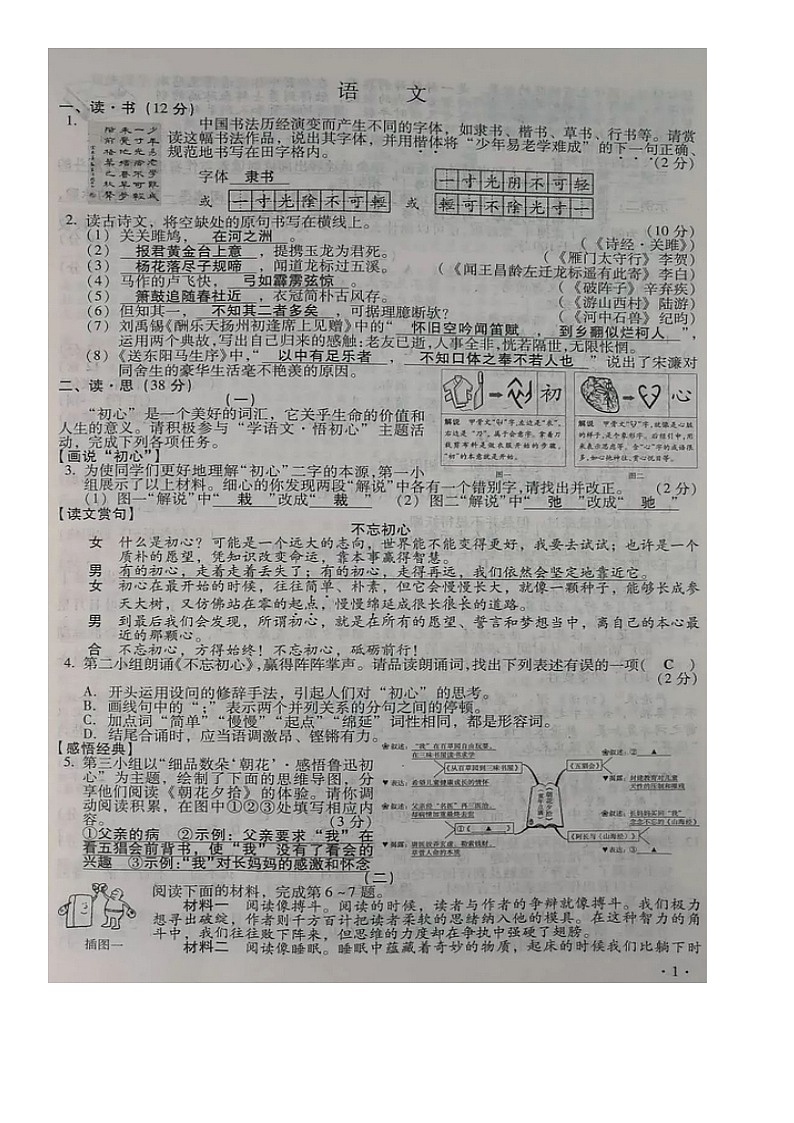 语 文
一、读·书(12分)
1. 中国书法历经演变而产生不同的字体,如隶书、楷书、草书、行书等。请赏
读这幅书法作品,说出其字体,并用楷体将“少年易老学难成”的下一句正确、
规范地书写在田字格内。 (2分)
少年易老学难成
一寸光陰不可輕
未覺池塘春草夢
階前梧葉已秋聲
字体 隶书
一寸光阴不可轻
或 一寸光陰不可輕 或 輕可不陰光寸一
2. 读古诗文,将空缺处的原句书写在横线上。 (10分)
(1) 关关雎鸠, 在河之洲 。 (《诗经·关雎》)
(2) 报君黄金台上意 ,提携玉龙为君死。 (《雁门太守行》李贺)
(3) 杨花落尽子规啼 ,闻道龙标过五溪。 (《闻王昌龄左迁龙标遥有此寄》李白)
(4) 马作的卢飞快, 弓如霹雳弦惊 。 (《破阵子》辛弃疾)
(5) 箫鼓追随春社近 ,衣冠简朴古风存。 (《游山西村》陆游)
(6) 但知其一, 不知其二者多矣 ,可据理臆断欤? (《河中石兽》纪昀)
(7) 刘禹锡《酬乐天扬州初逢席上见赠》中的“ 怀旧空吟闻笛赋 , 到乡翻似烂柯人 ”,
运用两个典故,写出自己归来的感触:老友已逝,人事全非,恍若隔世,无限怅惘。
(8)《送东阳马生序》中,“ 以中有足乐者 , 不知口体之奉不若人也 ”说出了宋濂对
同舍生的豪华生活毫不艳羡的原因。
二、读·思(38分)
(一)
“初心”是一个美好的词汇,它关乎生命的价值和
人生的意义。请积极参与“学语文·悟初心”主题活
动,完成下列各项任务。
初
解说 甲骨文“初”字,左边是“衣”,
右边是“刀”。属于会意字。拿着刀
栽剪布料是做衣服开始的步骤。
“初”的本意就是开始。
图一
心
解说 甲骨文“心”字,就像是心脏
的样子,是个象形字。后惯引申,用
来表示思虑等。含“心”字的成语很
多,如心弛神往、赏心悦目等。
图二
【画说“初心”】
3. 为使同学们更好地理解“初心”二字的本源,第一小
组展示了以上材料。细心的你发现两段“解说”中各有一个错别字,请找出并改正。 (2分)
(1) 图一“解说”中“ 栽 ”改成“ 裁 ” (2) 图二“解说”中“ 弛 ”改成“ 驰 ”
【读文赏句】
不忘初心
女 什么是初心?可能是一个远大的志向,世界能不能变得更好,我要去试试;也许是一个
质朴的愿望,凭知识改变命运,靠本事赢得智慧。
男 有的初心,走着走着丢失了;有的初心,走得再远,我们依然会坚定地靠近它。
女 初心在最开始的时候,往往简单、朴素,但它会慢慢长大,就像一颗种子,能够长成参
天大树,又仿佛站在零的起点,慢慢绵延成很长很长的道路。
男 到最后我们会发现,所谓初心,就是在所有的愿望、誓言和梦想当中,离自己的本心最
近的那颗心。
合 不忘初心,方得始终!不忘初心,砥砺前行!
4. 第二小组朗诵《不忘初心》,赢得阵阵掌声。请品读朗诵词,找出下列表述有误的一项( C )
(2分)
A. 开头运用设问的修辞手法,引起人们对“初心”的思考。
B. 画线句中的“;”表示两个并列关系的分句之间的停顿。
C. 加点词“简单”“慢慢”“起点”“绵延”词性相同,都是形容词。
D. 结尾合诵时,应当语调激昂、铿锵有力。
【感悟经典】
5. 第三小组以“细品数朵‘朝花’·感悟鲁迅初
心”为主题,绘制了下面的思维导图,分
享他们阅读《朝花夕拾》的体验。请你调
动阅读积累,在图中①②③处填写相应内
容。 (3分)
①父亲的病 ②示例:父亲要求“我”在
看五猖会前背书,使“我”没有了看会的
兴趣 ③示例:“我”对长妈妈的感激和怀念
叙述:“我”在百草园自由玩耍,
在三味书屋读书求学
《从百草园到三味书屋》
表达:希望儿童健康成长的情怀
叙述:父亲经“名医”再三医治,
却病情加重最终去世
①《 ▲ 》
叙述:② ▲
《五猖会》
揭露:封建教育对儿童
天性的压制和摧残
叙述:长妈妈买回“我”
念念不忘的《山海经》
《阿长与〈山海经〉》
表达:③ ▲
(二)
阅读下面的材料,完成第6~7题。
材料一 阅读像搏斗。阅读的时候,读者与作者的争辩就像搏斗。我们极力
想寻出破绽,作者则千方百计把读者柔软的思绪纳入他的模具。在这种智力的角
斗中,我们往往败下阵来,但思维的力度却在争执中强硬了翅膀。
插图一
材料二 阅读像睡眠。睡眠中蕴藏着奇妙的物质,起床的时候我们比躺下时
·1·